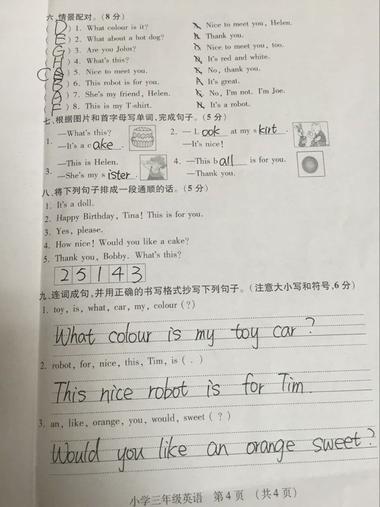 六、情景配对。(8分)
(D) 1. What colour is it? A. Nice to meet you, Helen.
(E) 2. What about a hot dog? B. Thank you.
(G) 3. Are you John? C. Nice to meet you, too.
(H) 4. What's this? D. It's red and white.
5. Nice to meet you. E. No, thank you.
(B) 6. This robot is for you. F. It's great.
(A) 7. She's my friend, Helen. G. No, I'm not. I'm Joe.
(F) 8. This is my T-shirt. H. It's a robot.
七、根据图片和首字母写单词,完成句子。(5分)
1. —What's this? 2. — L ook at my s kirt.
—It's a c ake. —It's nice!
3. —This is Helen. 4. —This b all is for you.
—She's my s ister. —Thank you.
八、将下列句子排成一段通顺的话。(5分)
1. It's a doll.
2. Happy Birthday, Tina! This is for you.
3. Yes, please.
4. How nice! Would you like a cake?
5. Thank you, Bobby. What's this?
2 5 1 4 3
九、连词成句,并用正确的书写格式抄写下列句子。(注意大小写和符号,6分)
1. toy, is, what, car, my, colour (?)
What colour is my toy car?
2. robot, for, nice, this, Tim, is (.)
This nice robot is for Tim
3. an, like, orange, you, would, sweet (?)
Would you like an orange sweet?
小学三年级英语 第4页 (共4页)